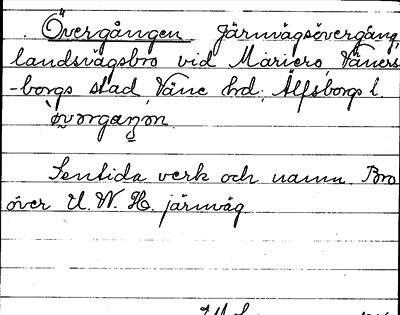 Övergången Järnvägsövergång,
landsvägsbro vid Mariero, Väners
-borgs stad, Väne hd, Älfsborgs l.
Sentida verk och namn. Bro
över U. W. H. järnväg